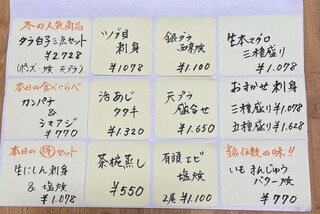 冬の人気商品
タラ白子三点セット
¥2.728
(ポン酢・焼・天プラ)
ツブ貝
刺身
¥1078
銀ダラ
西京焼
¥1.100
生本マグロ
三種盛り
¥1.078
本日の食べくらべ
カンパチ
&
シマアジ
¥770
活あじ
タタキ
¥1.320
天プラ
盛合せ
¥1.650
おまかせ刺身
三種盛り¥1.078
五種盛り¥1.628
本日の得セット
生にしん刺身
& 塩焼
¥1.078
茶碗蒸し
¥550
有頭エビ
塩焼
2尾 ¥1.100
当店伝統の味!!
いもまんじゅう
バター焼
¥770